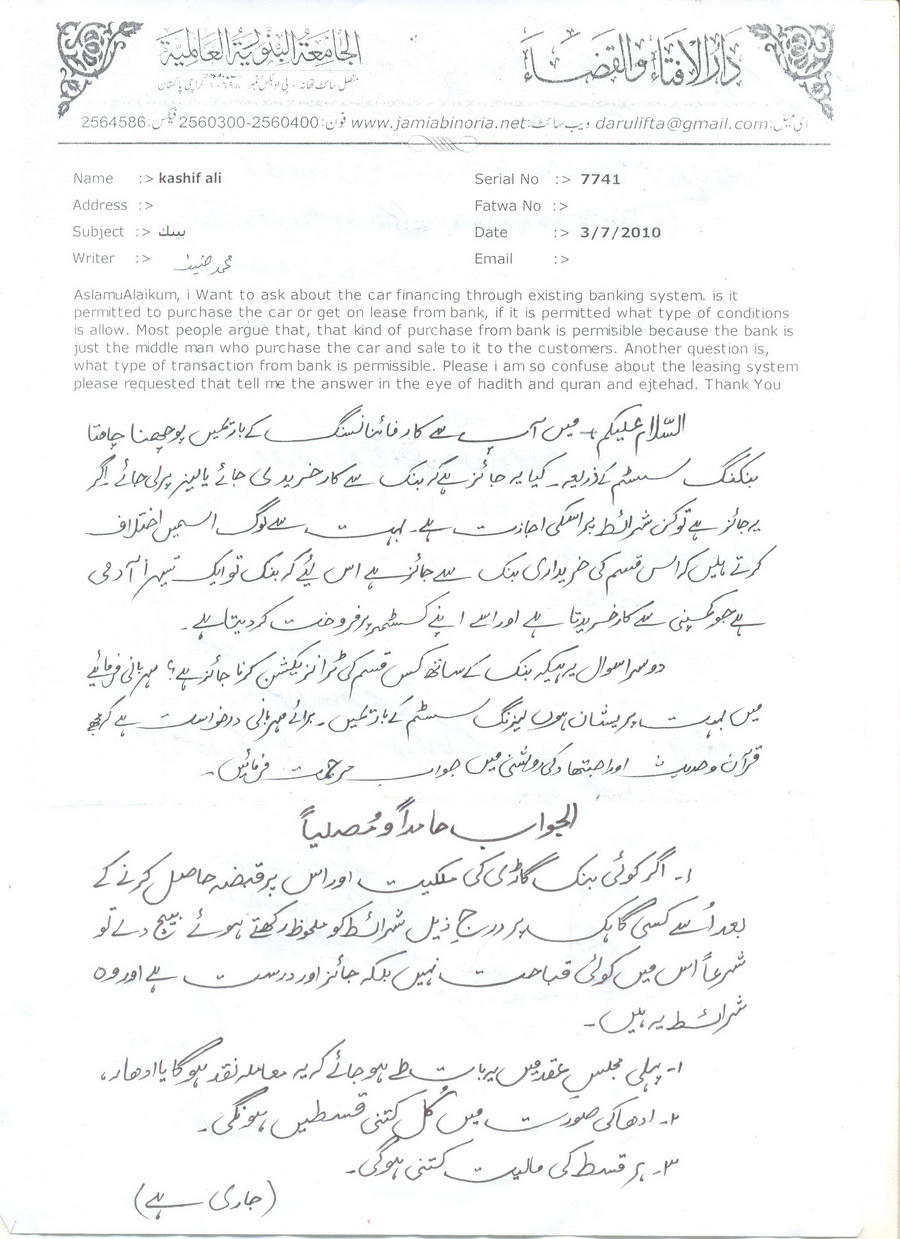 دارالافتاء والقضاء
الجامعة البنورية العالمية
متصل سائٹ تھانہ - پی او بکس نمبر کراچی پاکستان
ای میل: darulifta@gmail.com ویب سائٹ: www.jamiabinoria.net فون: 2560300-2560400 فیکس: 2564586
Name :> kashif ali Serial No :> 7741
Address :> Fatwa No :>
Subject :> بینك Date :> 3/7/2010
Writer :> محمد حنیف Email :>
AslamuAlaikum, i Want to ask about the car financing through existing banking system. is it
permitted to purchase the car or get on lease from bank, if it is permitted what type of conditions
is allow. Most people argue that, that kind of purchase from bank is permisible because the bank is
just the middle man who purchase the car and sale to it to the customers. Another question is,
what type of transaction from bank is permissible. Please i am so confuse about the leasing system
please requested that tell me the answer in the eye of hadith and quran and ejtehad. Thank You
السّلام علیکم میں آپ سے کار فائنانسنگ کے بارے میں پوچھنا چاہتا
بنکنگ سسٹم کے ذریعہ۔ کیا یہ جائز ہے کہ بنک سے کار خریدی جائے یا لیز پر لی جائے۔ اگر
یہ جائز ہے تو کن شرائط پر اسکی اجازت ہے۔ بہت سے لوگ اسمیں اختلاف
کرتے ہیں کہ اس قسم کی خریداری بنک سے جائز ہے اس لیے کہ بنک تو ایک تیسرا آدمی
ہے جو کمپنی سے کار خریدتا ہے اور اسے اپنے کسٹمر پر فروخت کر دیتا ہے۔
دوسرا سوال یہ ہیکہ بنک کے ساتھ کس قسم کی ٹرانزیکشن کرنا جائز ہے؟ مہربانی فرمائیے
میں بہت پریشان ہوں لیزنگ سسٹم کے بارے میں۔ برائے مہربانی درخواست ہے کہ مجھے
قرآن و حدیث اور اجتہاد کی روشنی میں جواب مرحمت فرمائیں۔
الجواب حامداً و مُصلیاً
۱۔ اگر کوئی بنک گاڑی کی ملکیت اور اس پر قبضہ حاصل کرنے کے
بعد اُسے کسی گاہک پر درج ذیل شرائط کو ملحوظ رکھتے ہوئے بیچ دے تو
شرعاً اس میں کوئی قباحت نہیں بلکہ جائز اور درست ہے اور وہ
شرائط یہ ہیں۔
۱۔ پہلی مجلسِ عقد میں یہ بات طے ہو جائے کہ یہ معاملہ نقد ہوگا یا ادھار،
۲۔ ادھار کی صورت میں کُل کتنی قسطیں ہونگی۔
۳۔ ہر قسط کی مالیت کتنی ہوگی۔
(جاری ہے)